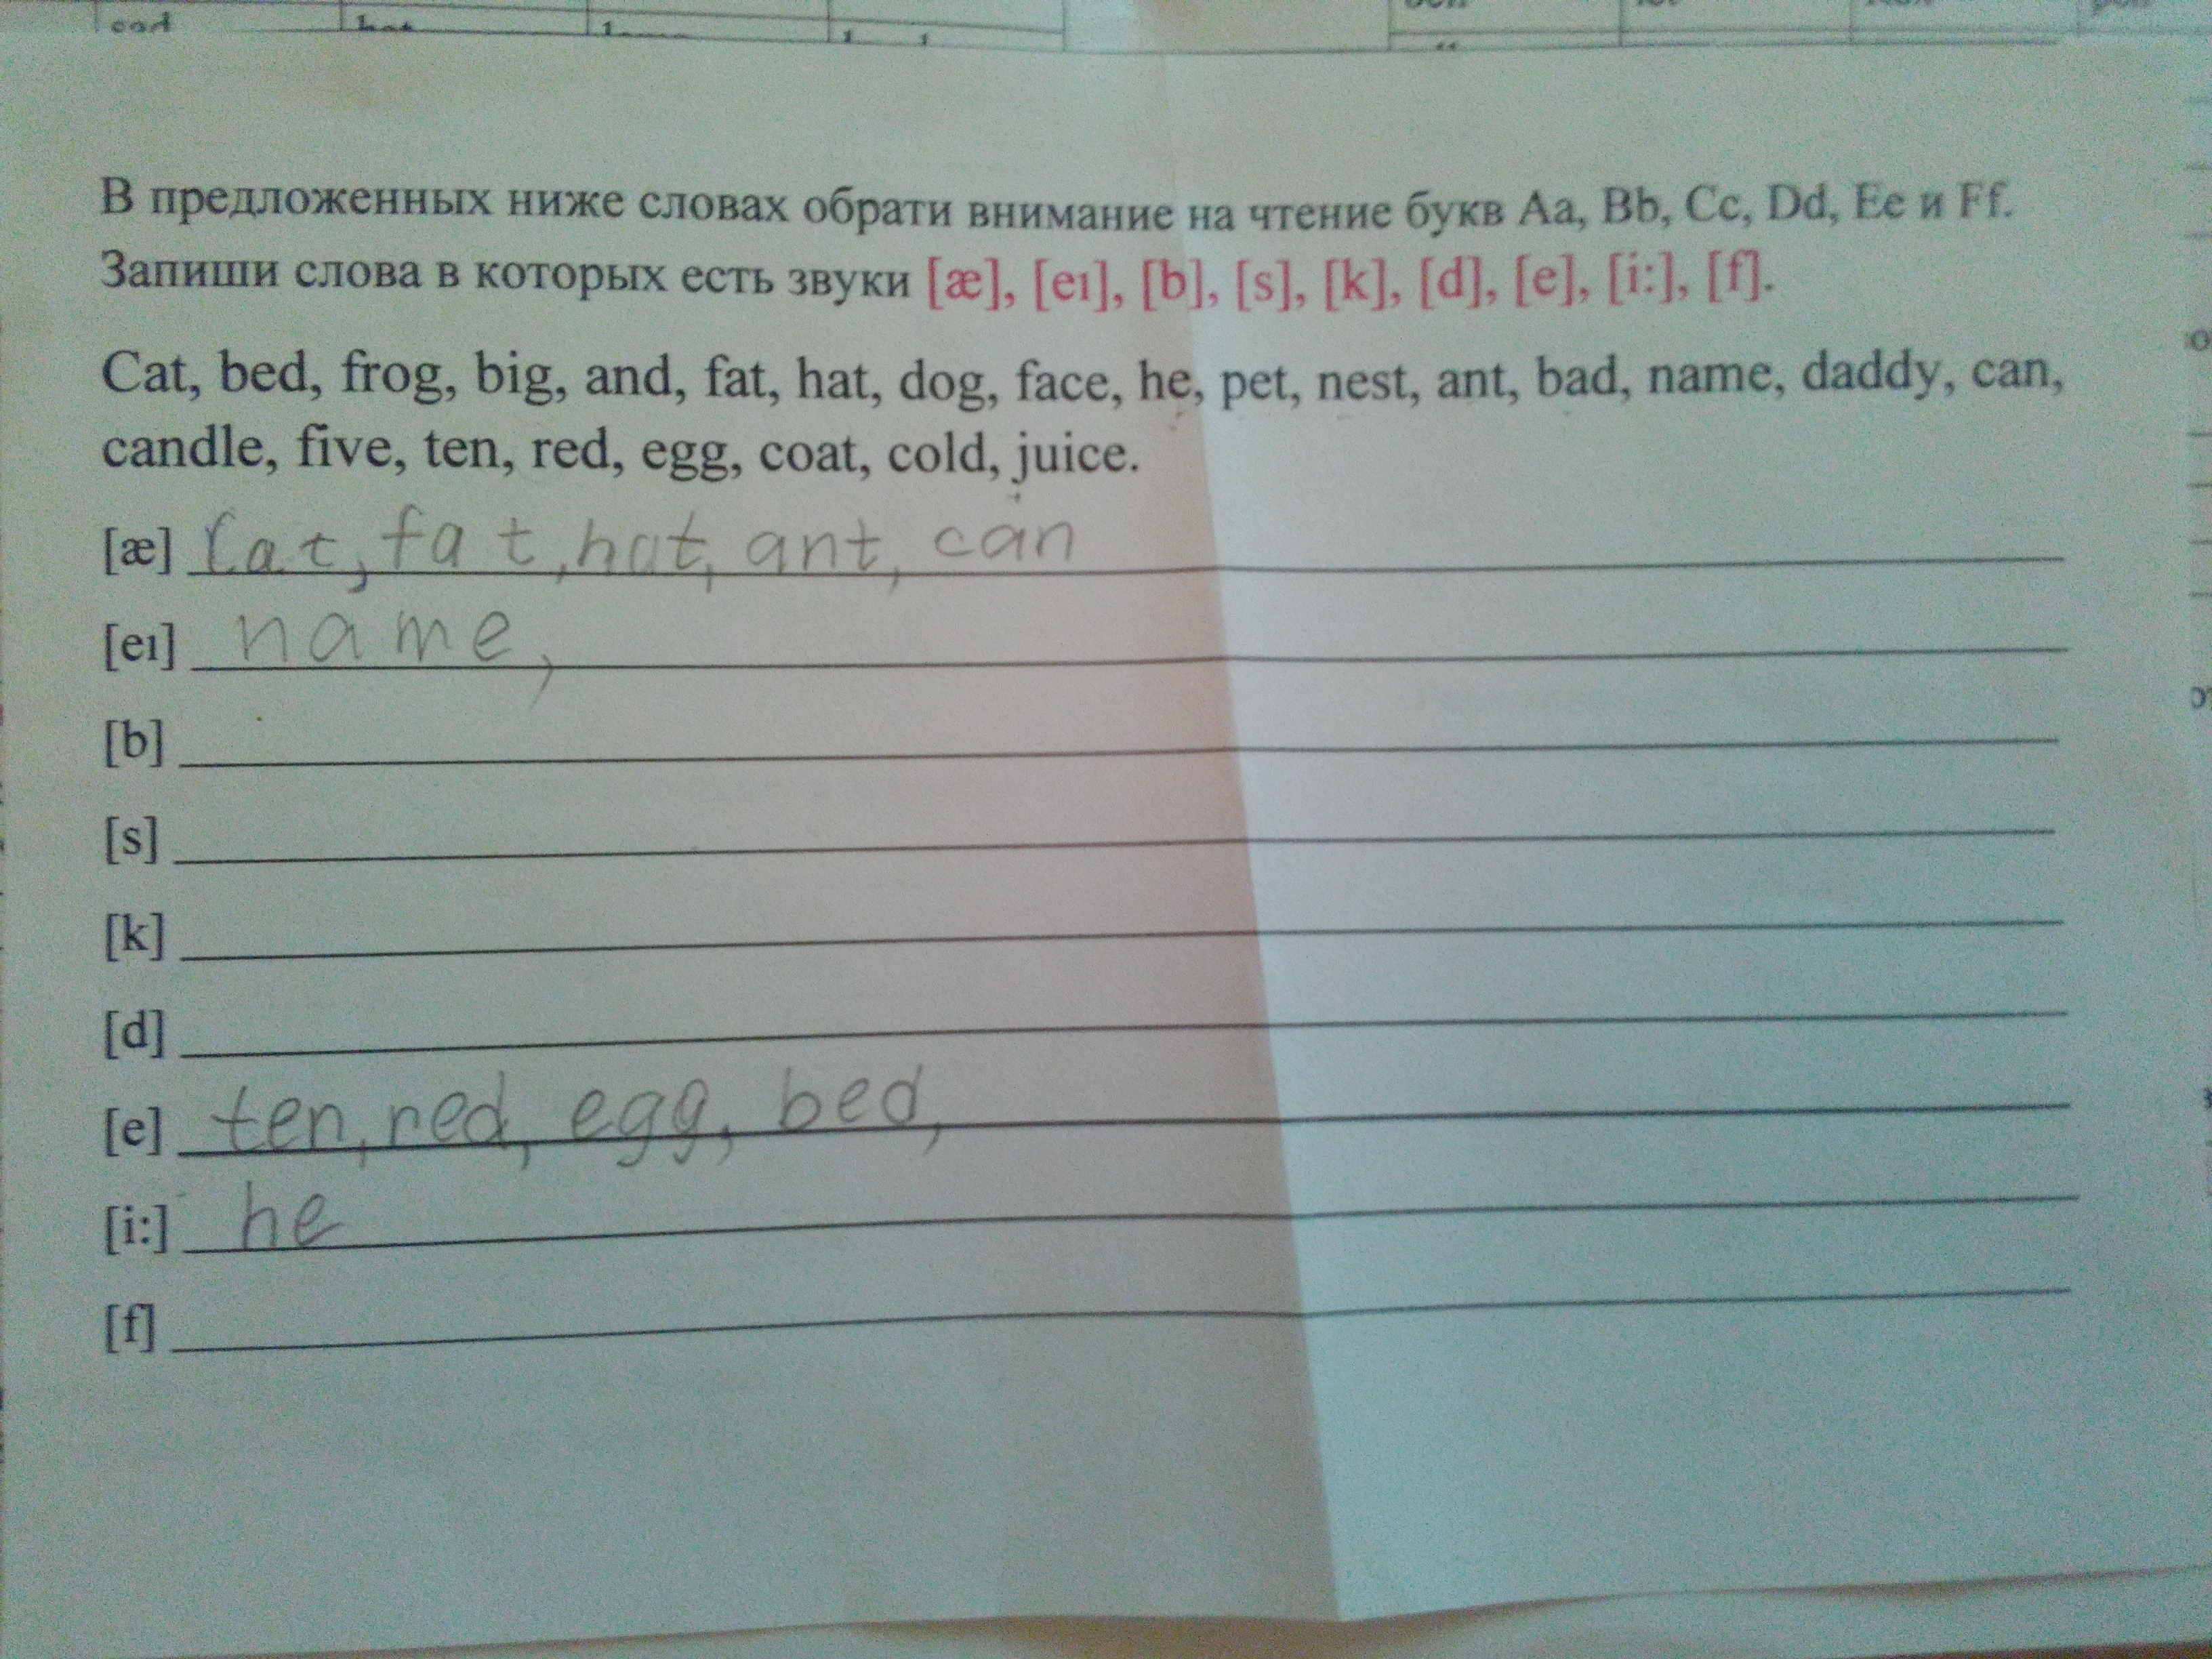 В предложенных ниже словах обрати внимание на чтение букв Aa, Bb, Cc, Dd, Ee и Ff.
Запиши слова в которых есть звуки [æ], [eı], [b], [s], [k], [d], [e], [i:], [f].
Cat, bed, frog, big, and, fat, hat, dog, face, he, pet, nest, ant, bad, name, daddy, can,
candle, five, ten, red, egg, coat, cold, juice.
[æ] Cat, fat, hat, ant, can
[eı] name,
[b]
[s]
[k]
[d]
[e] ten, red, egg, bed,
[i:] he
[f]